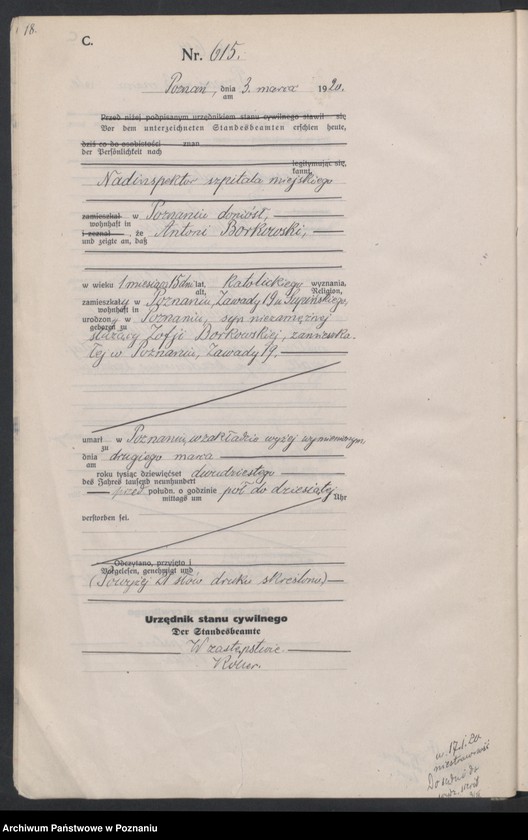 18.
C.
Nr. 615.
Poznań, dnia 3. marca 1920.
am
Przed niżej podpisanym urzędnikiem stanu cywilnego stawił się
Vor dem unterzeichneten Standesbeamten erschien heute,
dziś co do osobistości znan
der Persönlichkeit nach
legitymując się,
kannt,
Nadinspektor szpitala miejskiego
zamieszkał w Poznaniu doniósł,
wohnhaft in
i zeznał, że Antoni Borkowski,
und zeigte an, daß
w wieku 1 miesiąca 15 dni lat, katolickiego wyznania,
alt, Religion,
zamieszkały w Poznaniu, Zawady 19 u
wohnhaft in
urodzony w Poznaniu, syn niezamężnej
geboren zu
służącej Zofji Borkowskiej, zamieszka-
łej w Poznaniu, Zawady 19.
umarł w Poznaniu, w zakładzie wyżej wymienionym,
zu
dnia drugiego marca
am
roku tysiąc dziewięćset dwudziestego
des Jahres tausend neunhundert
przed połudn. o godzinie pół do dziesiątej
mittags um Uhr
verstorben sei.
Odczytano, przyjęto i
Vorgelesen, genehmigt und
(Powyżej 21 słów druku skreślono)
Urzędnik stanu cywilnego
Der Standesbeamte
W zastępstwie
w. 17.1.20
Archiwum Państwowe w Poznaniu